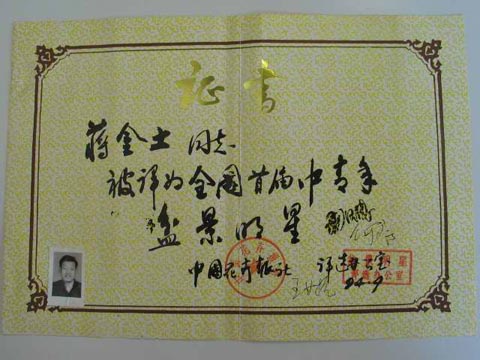 证书
蒋金土 同志
被评为全国首届中青年
盆景明星
中国花卉报社 评选办公室
94.9